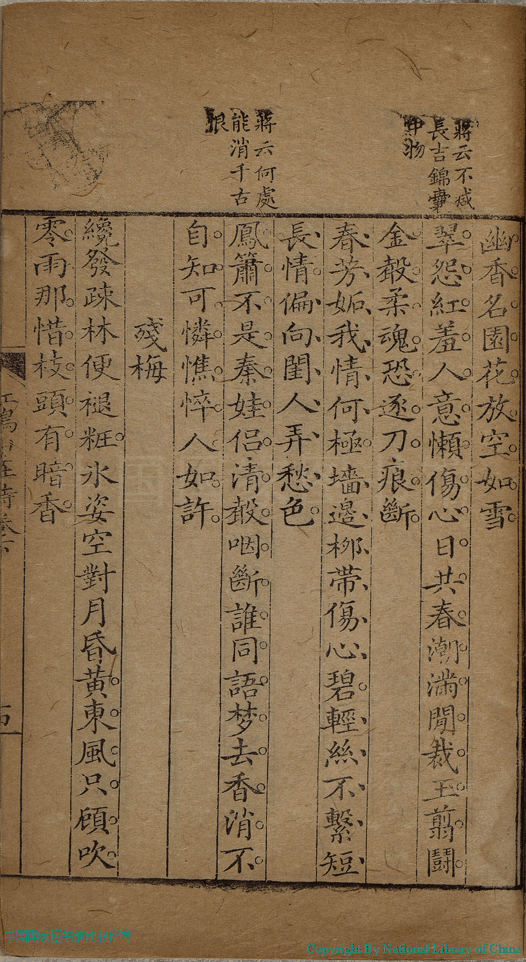 蔣云不減
長吉錦囊
中物
蔣云何處
能消千古
恨
幽香名園花放空如雪
翠怨紅羞人意懶傷心日共春潮滿閒裁玉翦鬪
金縠柔魂恐逐刀痕斷
春芳妬我情何極墻邊柳帶傷心碧輕絲不繫短
長情偏向閨人弄愁色
鳳簫不是秦娃侶清縠咽斷誰同語梦去香消不
自知可憐憔悴人如許
殘梅
纔發疎林便褪粧氷姿空對月昏黃東風只顧吹
零雨那惜枝頭有暗香
Copyright By National Library of China